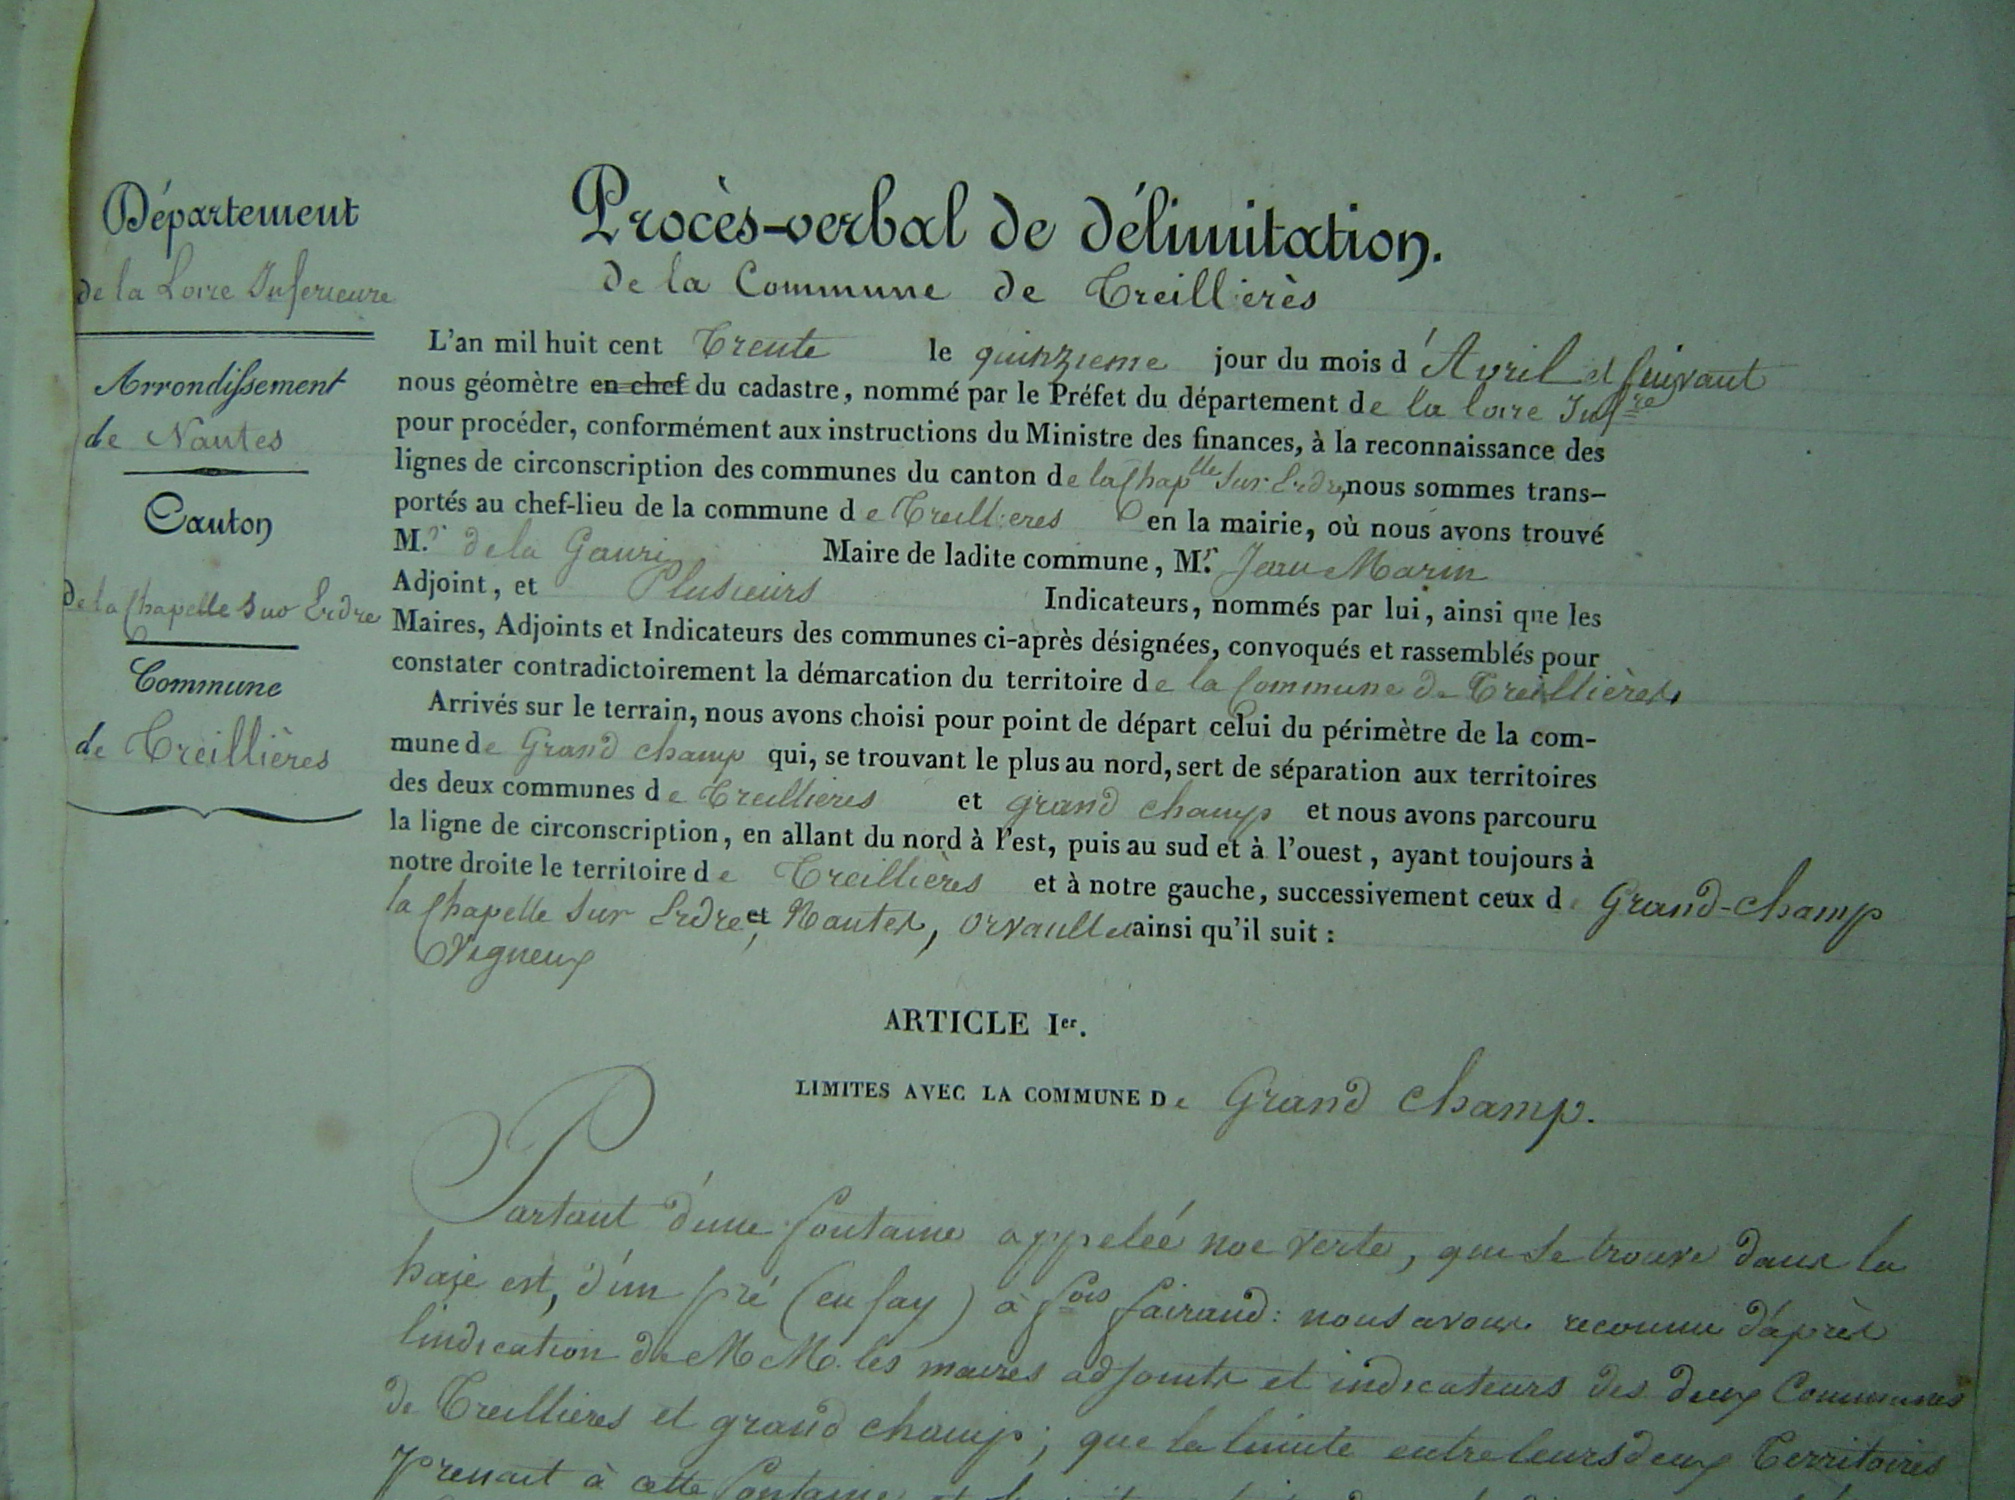 Département
de la Loire Inferieure
Arrondissement
de Nantes
Canton
de la Chapelle sur Erdre
Commune
de Treillières
Procès-verbal de délimitation.
de la Commune de Treillierès
L'an mil huit cent Trente le quinzieme jour du mois d'Avril et suivant
nous géomètre en chef du cadastre, nommé par le Préfet du département de la loire Infre
pour procéder, conformément aux instructions du Ministre des finances, à la reconnaissance des
lignes de circonscription des communes du canton de la Chaplle sur Erdre, nous sommes trans-
portés au chef-lieu de la commune de Treillieres en la mairie, où nous avons trouvé
M.r de la Gouri Maire de ladite commune, Mr. Jean Marin
Adjoint, et Plusieurs Indicateurs, nommés par lui, ainsi que les
Maires, Adjoints et Indicateurs des communes ci-après désignées, convoqués et rassemblés pour
constater contradictoirement la démarcation du territoire de la Commune de Treillières.
Arrivés sur le terrain, nous avons choisi pour point de départ celui du périmètre de la com-
mune de Grand champ qui, se trouvant le plus au nord, sert de séparation aux territoires
des deux communes de Treillieres et grand champ et nous avons parcouru
la ligne de circonscription, en allant du nord à l'est, puis au sud et à l'ouest, ayant toujours à
notre droite le territoire de Treillières et à notre gauche, successivement ceux de Grand-champ
la Chapelle sur Erdre et Nantes, orvault et ainsi qu'il suit :
Vigneux
ARTICLE Ier.
LIMITES AVEC LA COMMUNE De Grand champ.
Partant d'une fontaine appeleé noe verte, qui se trouve dans la
haie est, d'un pré (en fay) à fois fairand: nous avons reconnu d'après
l'indication de MM. les maires adjoints et indicateurs des deux Communes
de Treillieres et grand champ; que la limite entre leurs deux Territoires
prenait à cette fontaine